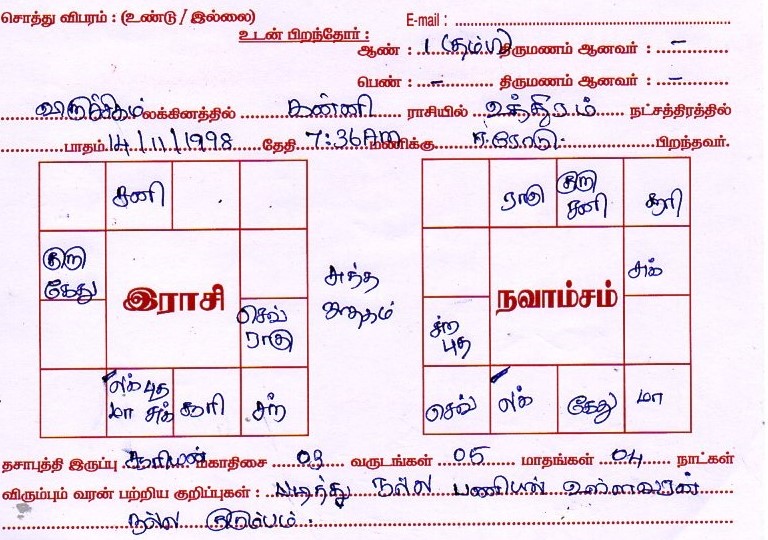 சொத்து விபரம் : (உண்டு / இல்லை)
E-mail :
உடன் பிறந்தோர் :
ஆண் : 1 (தம்பி) திருமணம் ஆனவர் : –
பெண் : – திருமணம் ஆனவர் : –
லக்கினத்தில் கன்னி ராசியில் உத்திரம் நட்சத்திரத்தில்
பாதம் 14/11/1998 தேதி 7:36AM மணிக்கு ஈரோடு. பிறந்தவர்.
சனி
குரு
கேது
இராசி
செவ்
ராகு
லக் புத
மா சுக்
சூரி
சந்
சுத்த
ஜாதகம்
ராகு
குரு
சனி
சூரி
சுக்
நவாம்சம்
சந்
புத
செவ்
லக்
கேது
மா
தசாபுத்தி இருப்பு சூரியன் மகாதிசை 03 வருடங்கள் 05 மாதங்கள் 04 நாட்கள்
விரும்பும் வரன் பற்றிய குறிப்புகள் : படித்து நல்ல பணியில் உள்ளவரன்
நல்ல குடும்பம்.